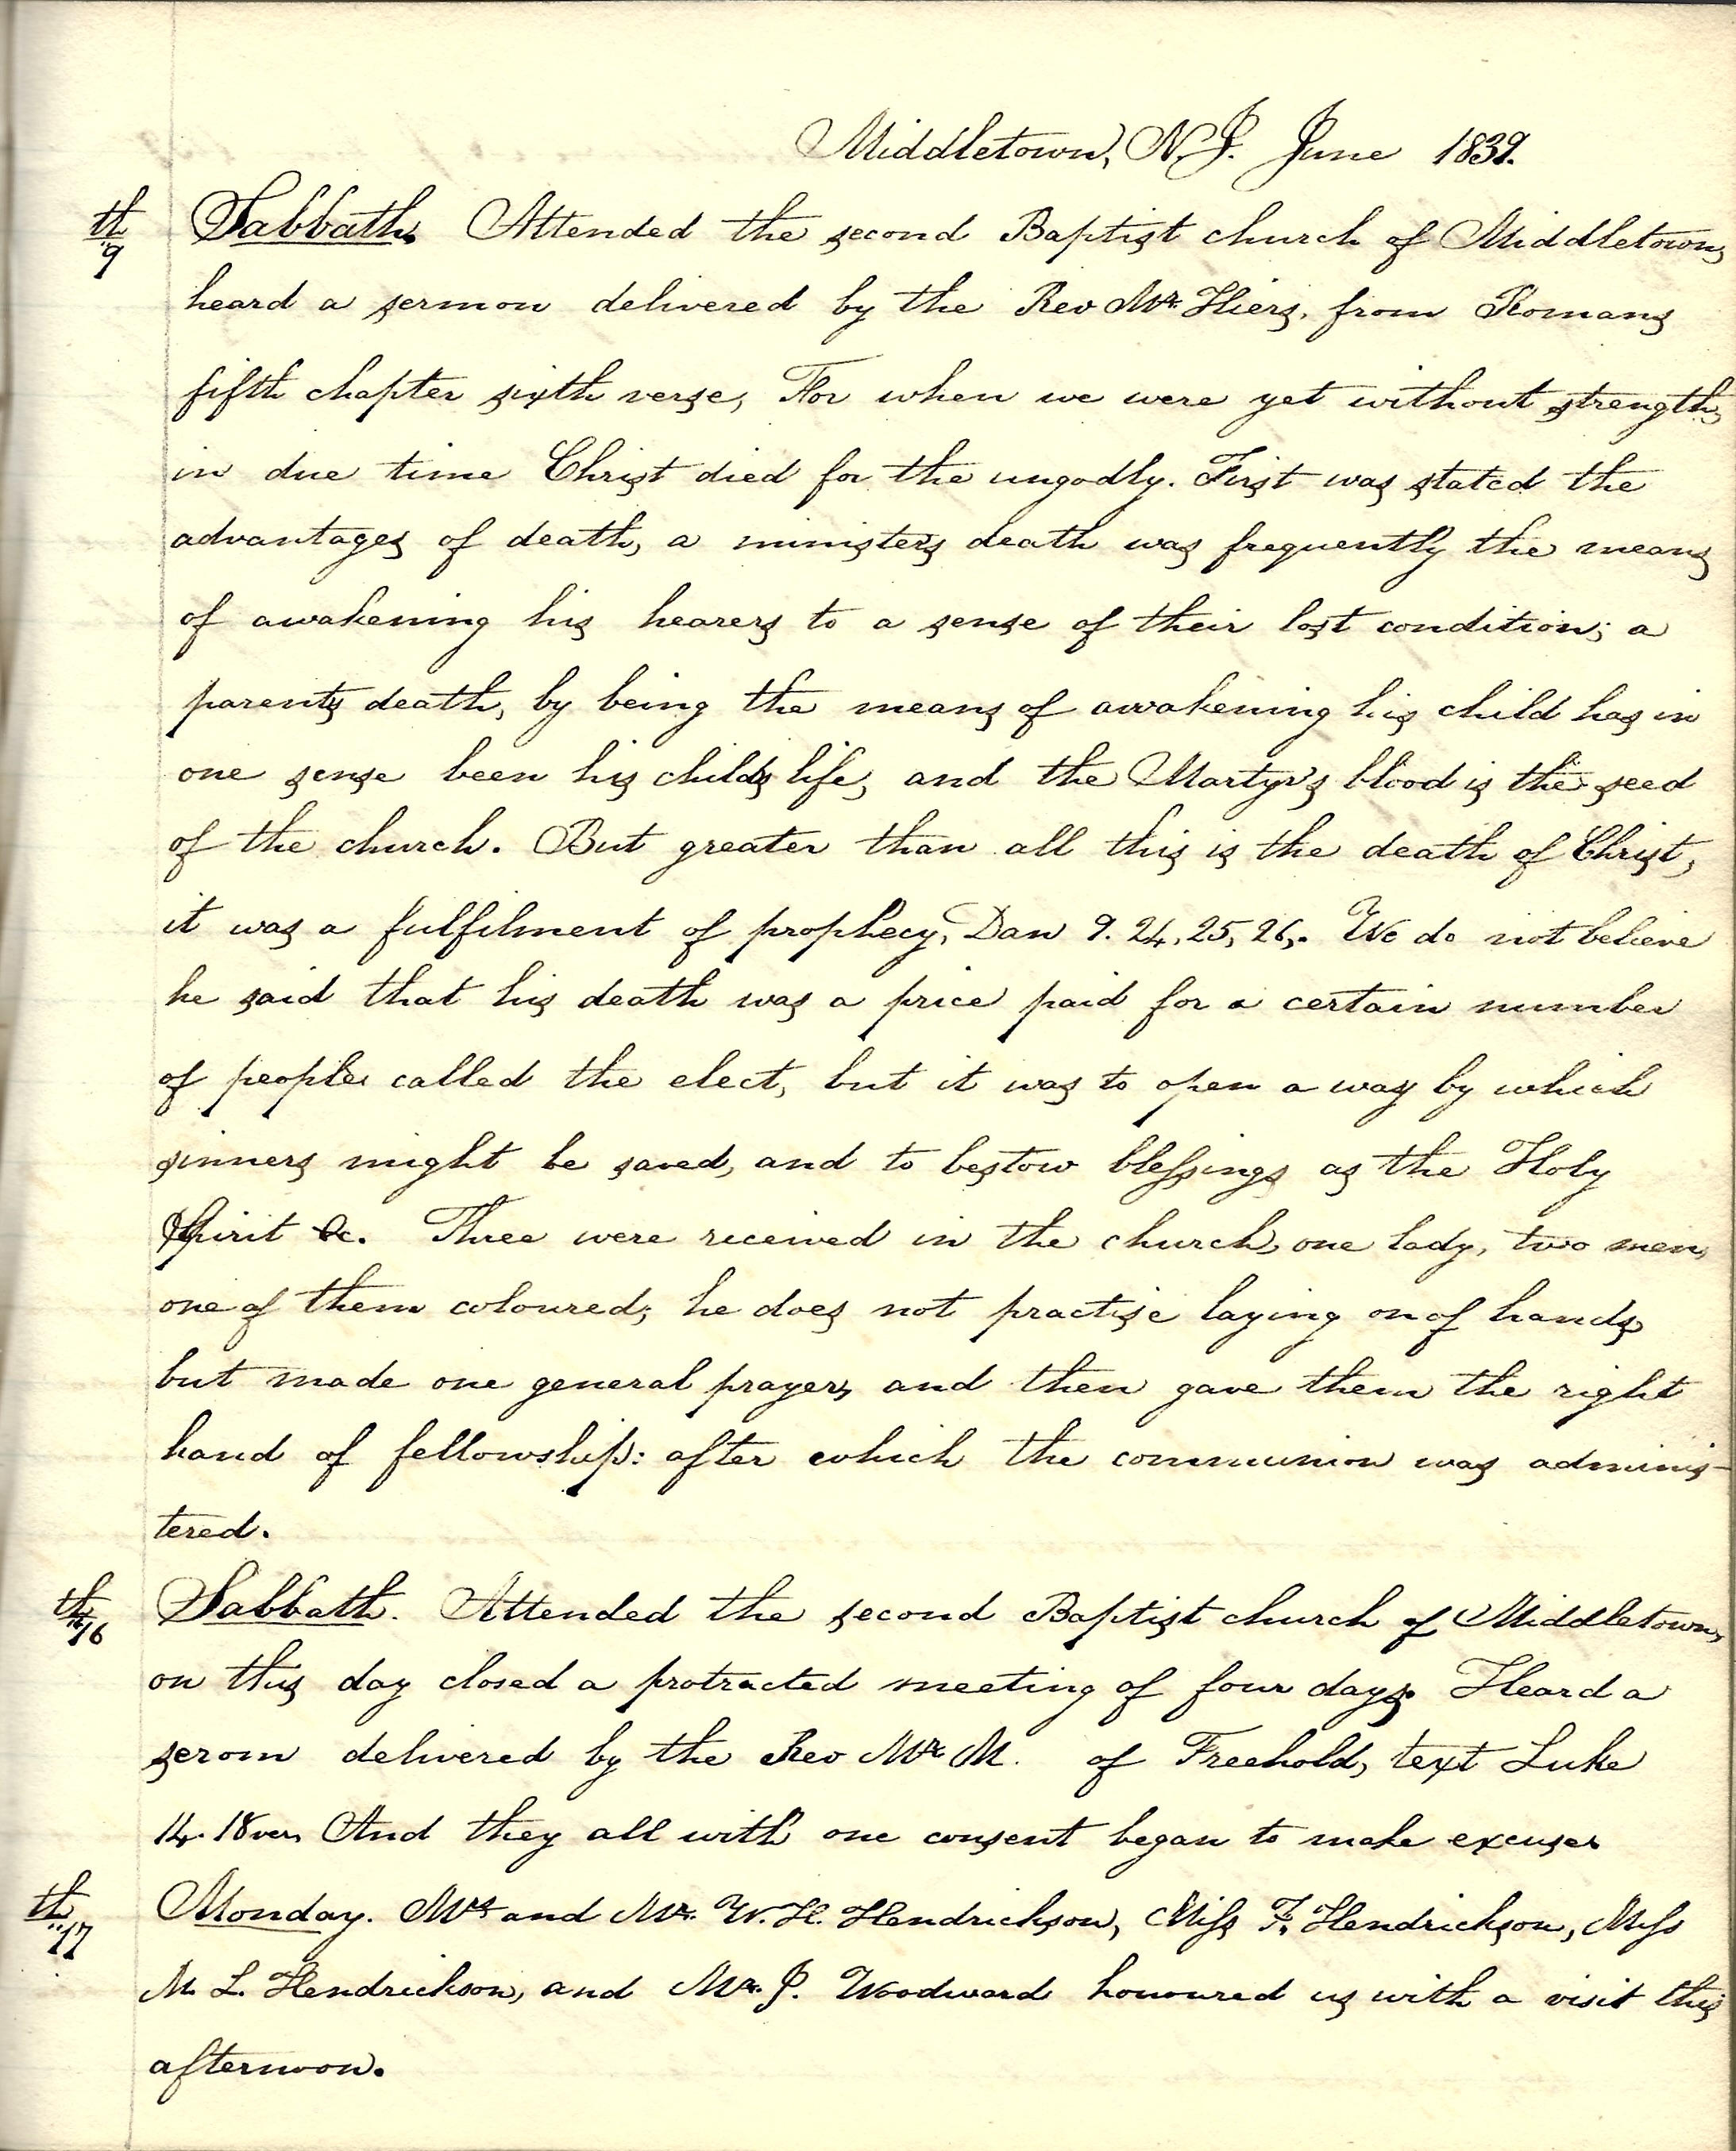 Middletown, N.J. June 1839.
th 9 Sabbath. Attended the second Baptist church of Middletown,
heard a sermon delivered by the Rev Mr. Hiers, from Romans
fifth chapter sixth verse, For when we were yet without strength,
in due time Christ died for the ungodly. First was stated the
advantages of death, a minister's death was frequently the means
of awakening his hearers to a sense of their lost condition; a
parents death, by being the means of awakening his child has in
one sense been his child's life, and the Martyr's blood is the seed
of the church. But greater than all this is the death of Christ,
it was a fulfilment of prophecy, Dan 9. 24, 25, 26,. We do not believe
he said that his death was a price paid for a certain number
of people called the elect, but it was to open a way by which
sinners might be saved, and to bestow blessings as the Holy
Spirit &c. Three were received in the church, one lady, two men,
one of them coloured; he does not practise laying on of hands
but made one general prayer, and then gave them the right
hand of fellowship: after which the communion was adminis-
tered.
th 16 Sabbath. Attended the second Baptist church of Middletown,
on this day closed a protracted meeting of four days. Heard a
serom delivered by the Rev Mr. M. of Freehold, text Luke
14. 18 ver. And they all with one consent began to make excuse.
th 17 Monday. Mrs and Mr. W. H. Hendrickson, Miss F. Hendrickson, Miss
M. L. Hendrickson, and Mr. J. Woodward honoured us with a visit this
afternoon.